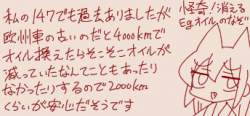 私の147でも過去ありましたが
欧州車の古いのだと4000kmで
オイル換えたらそこそこオイルが
減っていたなんてこともあったり
なかったりするので2000km
くらいが安心だそうです
怪奇!消える
Egオイルのなぞ!